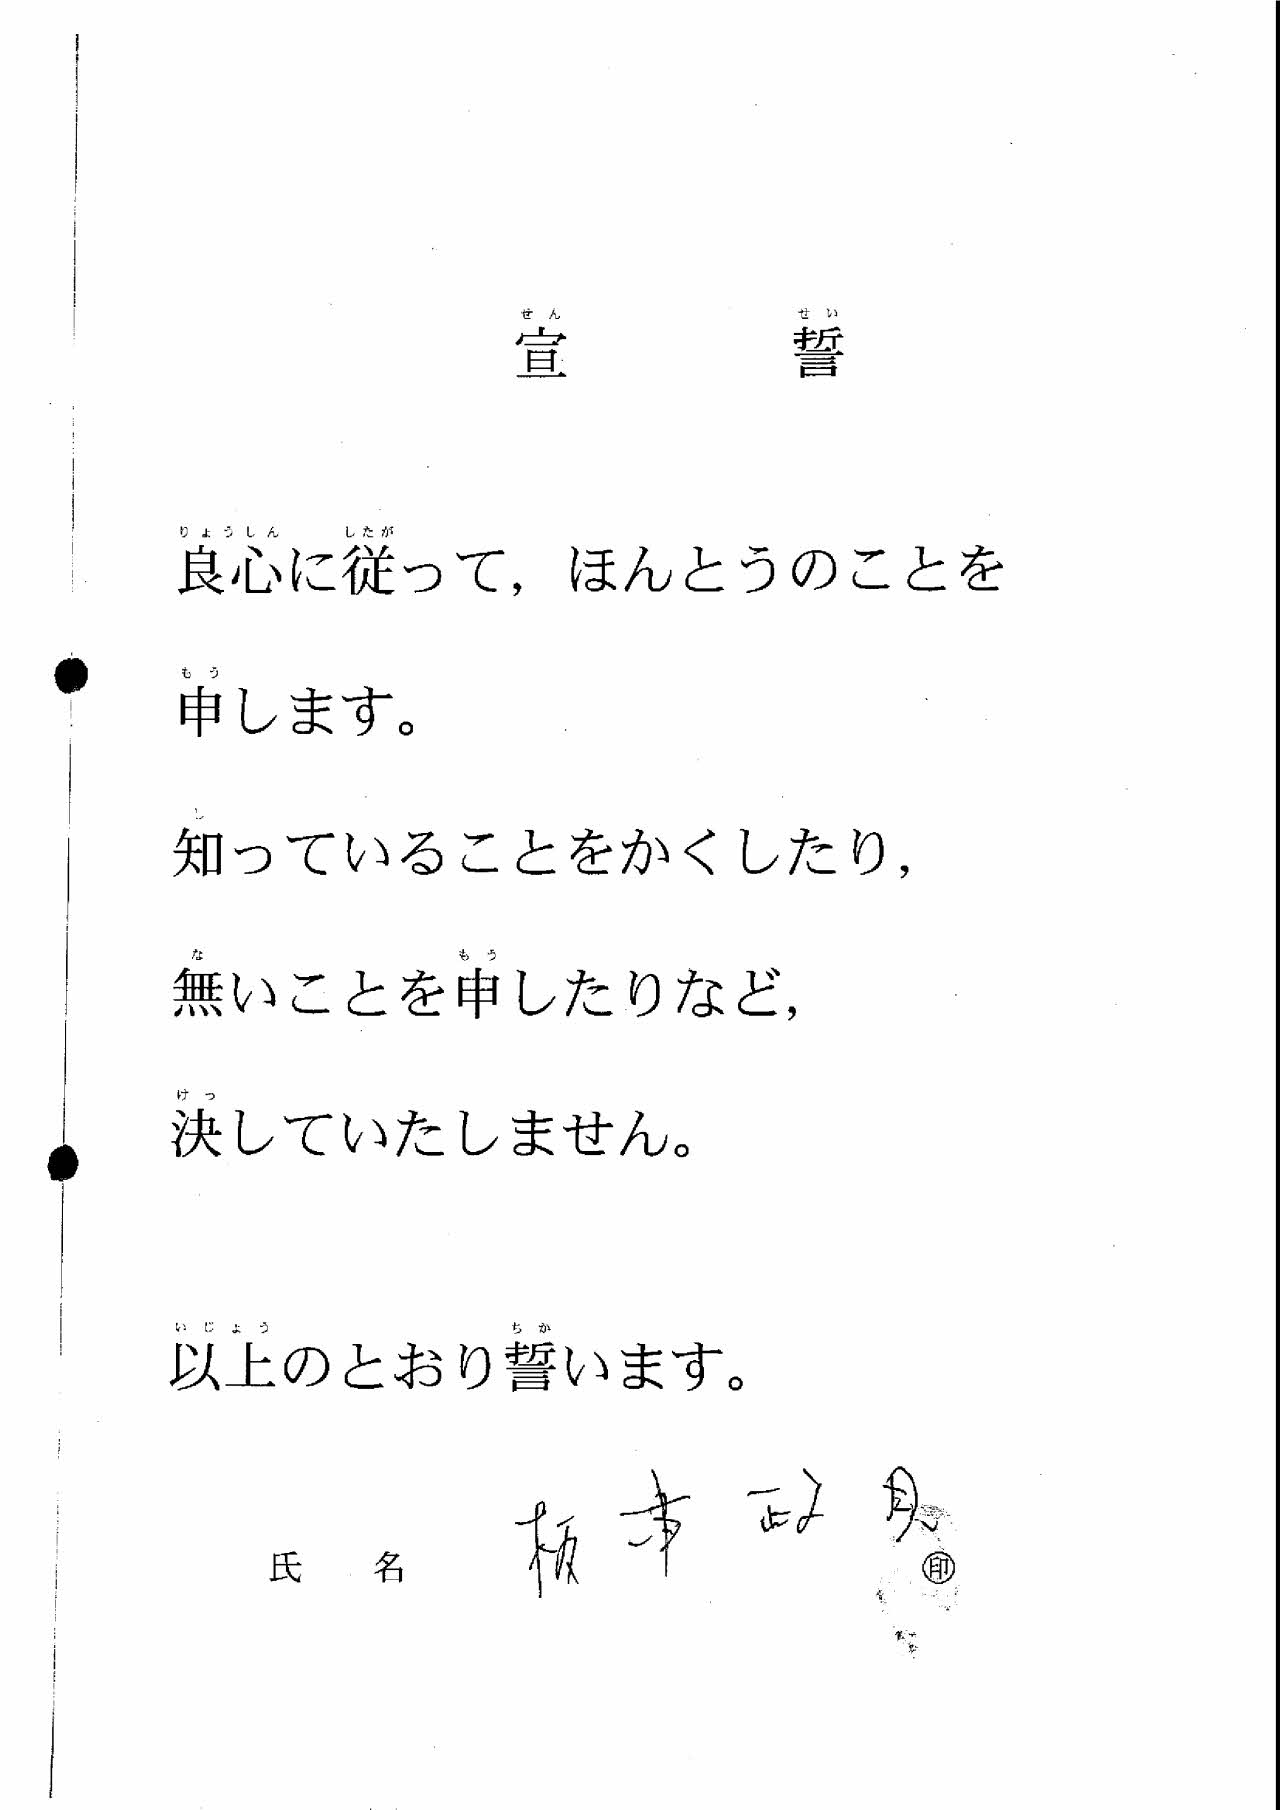 宣誓
良心に従って，ほんとうのことを
申します。
知っていることをかくしたり，
無いことを申したりなど，
決していたしません。
以上のとおり誓います。
氏名 板 政 印